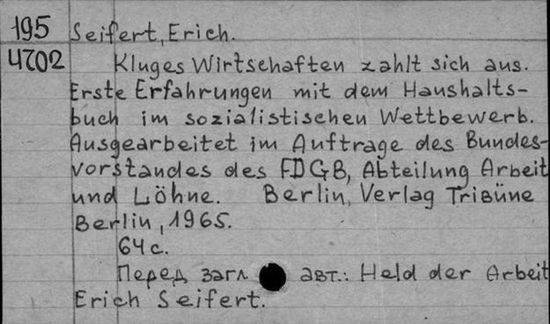 195 Seifert, Erich.
4702 Kluges Wirtschaften zahlt sich aus.
Erste Erfahrungen mit dem Haushalts-
buch im sozialistischen Wettbewerb.
Ausgearbeitet im Auftrage des Bundes-
vorstandes des FDGB, Abteilung Arbeit
und Löhne. Berlin, Verlag Tribüne
Berlin, 1965.
64 с.
Перед загл авт.: Held der Arbeit
Erich Seifert.